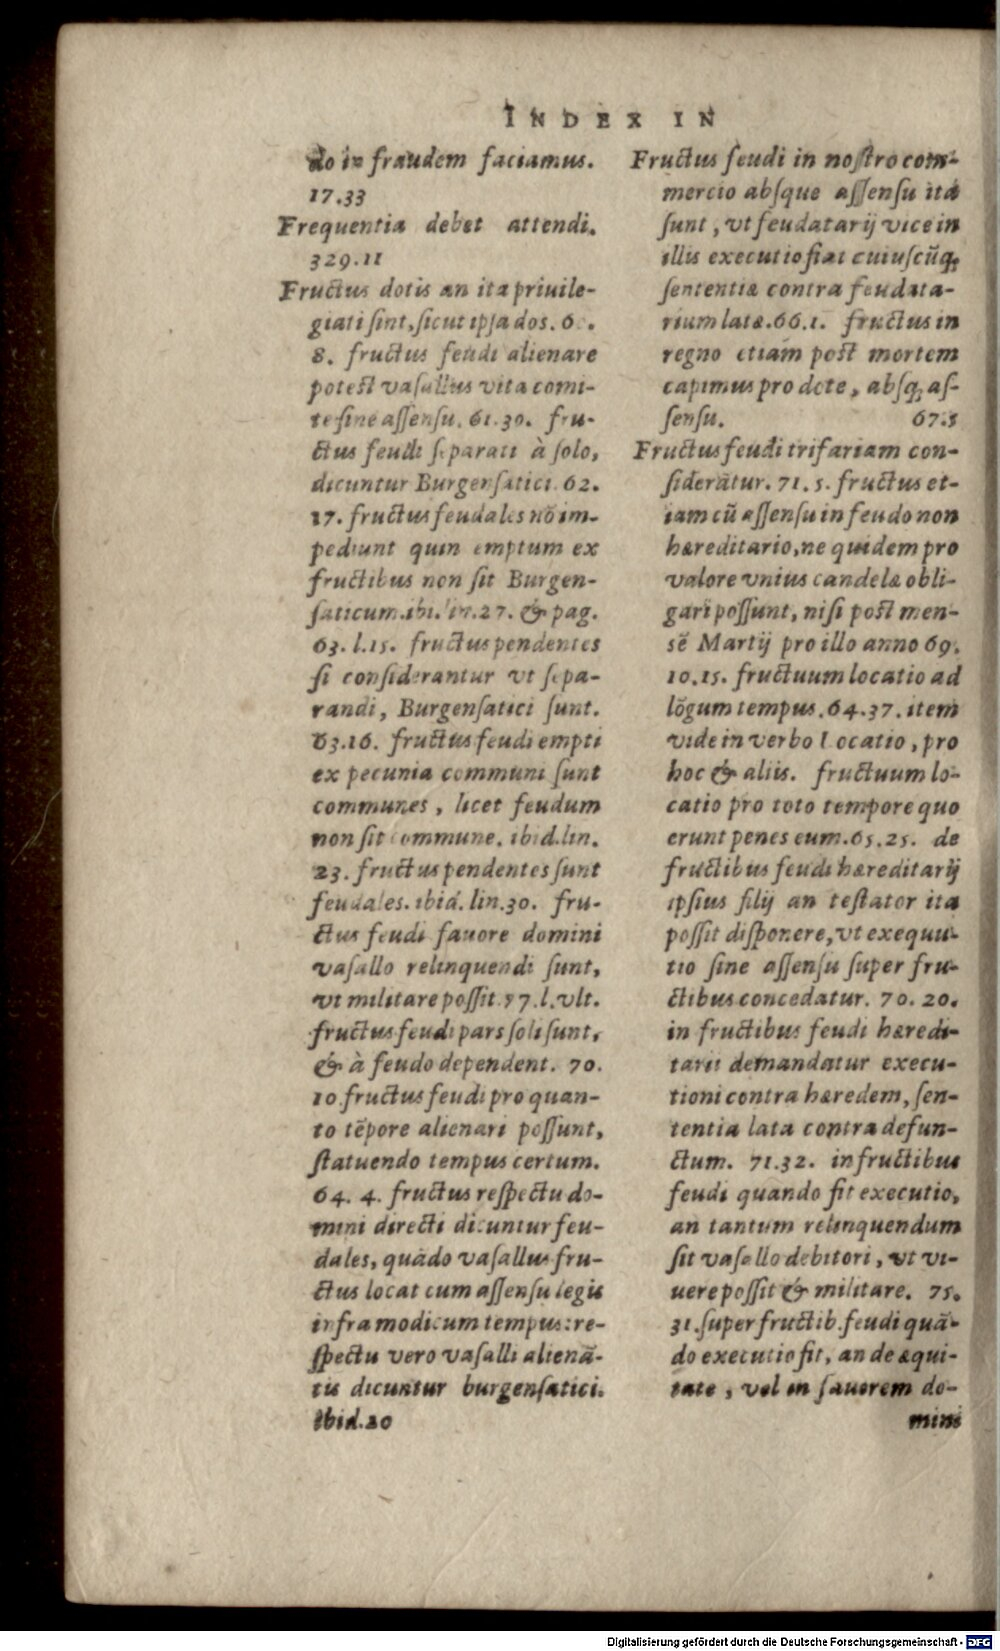 INDEX IN
do in fraudem faciamus.
17.33
Frequentia debet attendi.
329.11
Fructus dotis an ita priuile-
giati sint, sicut ipsa dos. 6 .
8. fructus feudi alienare
potest vasallus vita comi-
te sine assensu. 61.30. fru-
ctus feudi separati à solo,
dicuntur Burgensatici. 62.
17. fructus feudales nō im-
pediunt quin emptum ex
fructibus non sit Burgen-
saticum. ibi. lin. 27. & pag.
63. l.15. fructus pendentes
si considerantur vt sepa-
randi, Burgensatici sunt.
63.16. fructus feudi empti
ex pecunia communi sunt
communes, licet feudum
non sit commune. ibid. lin.
23. fructus pendentes sunt
feudales. ibid. lin.30. fru-
ctus feudi fauore domini
vasallo relinquendi sunt,
vt militare possit. 77. l. vlt.
fructus feudi pars soli sunt,
& à feudo dependent. 70.
10. fructus feudi pro quan-
to tēpore alienari possunt,
statuendo tempus certum.
64. 4. fructus respectu do-
mini directi dicuntur feu-
dales, quādo vasallus fru-
ctus locat cum assensu legis
infra modicum tempus: re-
spectu vero vasalli alienā-
tis dicuntur burgensatici.
ibid.20
Fructus feudi in nostro com-
mercio absque assensu ita
sunt, vt feudatarij vice in
illis executio fiat cuiuscūq;
sententiæ contra feudata-
rium latæ. 66.1. fructus in
regno etiam post mortem
capimus pro dote, absq; as-
sensu. 67.5
Fructus feudi trifariam con-
siderātur. 71. 5. fructus et-
iam cū assensu in feudo non
hæreditario, ne quidem pro
valore vnius candelæ obli-
gari possunt, nisi post men-
sē Martij pro illo anno 69.
10.15. fructuum locatio ad
lōgum tempus. 64.37. item
vide in verbo Locatio, pro
hoc & aliis. fructuum lo-
catio pro toto tempore quo
erunt penes eum. 65.25. de
fructibus feudi hæreditarij
ipsius filij an testator ita
possit disponere, vt exequu-
tio sine assensu super fru-
ctibus concedatur. 70. 20.
in fructibus feudi hæredi-
tarii demandatur execu-
tioni contra hæredem, sen-
tentia lata contra defun-
ctum. 71.32. in fructibus
feudi quando fit executio,
an tantum relinquendum
sit vasallo debitori, vt vi-
uere possit & militare. 75.
31. super fructib. feudi quā-
do executio fit, an de æqui-
tate, vel in fauorem do-
mini
Digitalisierung gefördert durch die Deutsche Forschungsgemeinschaft - DFG